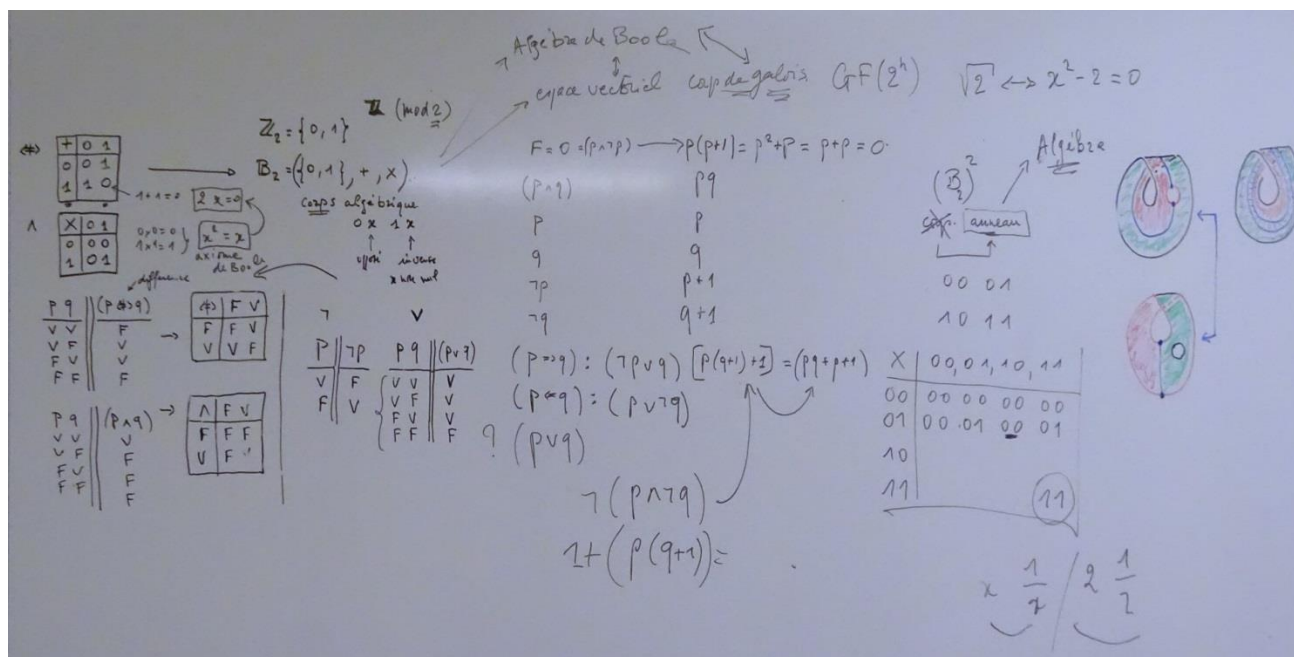 Algèbre de Boole
espace vectoriel corps de galois GF(2^n) √2 ↔ x²-2=0
Z (mod 2)
Z₂ = {0,1}
B₂ = ({0,1}, +, ×)
corps algébrique
0 x 1 x
opposé inverse
x non nul
+ | 0 1
0 | 0 1
1 | 1 0
1+1=0
2x=0
∧
X | 0 1
0 | 0 0
1 | 0 1
0×0=0
1×1=1
x²=x
axiome
de Boole
différence
p q (p⇎q)
V V F
V F V
F V V
F F F
F V
F F V
V V F
p q (p∧q)
V V V
V F F
F V F
F F F
∧ F V
F F F
V F
¬ ∨
P ¬p
V F
F V
p q (p∨q)
V V V
V F V
F V V
F F F
F=0=(p∧¬p) → p(p+1) = p²+p = p+p = 0
(p∧q) pq
p p
q q
¬p p+1
¬q q+1
(p⇒q) : (¬p∨q) [p(q+1)+1] = (pq+p+1)
(p⇐q) : (p∨¬q)
? (p∨q)
¬(p∧¬q)
1+(p(q+1))=
Algèbre
(B₂)²
corps anneau
00 01
10 11
X | 00, 01, 10, 11
00 | 00 00 00 00
01 | 00 01 00 01
10
11 11
x 1/x / 2 1/2